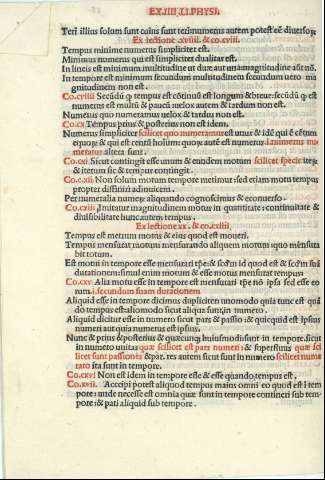 EX.IIII.LI.PHYSI.
Teri illius solum sunt cuius sunt termi: numerus autem potest eē diuersorum
Ex lectione .xviiii. & co.cviii.
Tempus minime numerus simpliciter est.
Minimus numerus qui est simpliciter dualitas est.
In lineis est minimum multitudine et datur autem magnitudine aut nō.
In tempore est minimum secundum multitudinem secundum uero magnitudinem non est.
Co.cviiii Secūdū quod tempus est cōtinuū est longum & breue: secūdū quod est
numerus est multū & paucū uelox autem & tardum non est.
Numerus quo numeramus uelox & tardus non est.
Co.cx Tempus prius & posterius non est idem.
Numerus simpliciter scilicet quo numeramus est unus & idē qui ē cētum
equorum & qui est centū hominum
Co.cxi Sicut contingit esse unum & eundem motum scilicet specie iterum
& iterum sic & tempus contingit.
Co.cxii Non solum motum tempore metimur sed etiam motu tempus
propter diffiniri adinuicem.
Per numeralia numerum aliquando cognoscimus & econuerso.
Co.cxiii Imitatur magnitudinem motus in quantitate: continuitate &
diuisibilitate hunc autem tempus.
Ex lectione xx. & co.cxiiii.
Tempus est metrum motus & eius quod est moueri.
Tempus mensurat motum mensurando aliquem motum quo mensurabit totum.
Est motui in tempore esse mensurari
durationem: simul enim motum & esse motus mensurat tempus
Co.cxv Alia motu esse in tempore est mensurari tpē nō ipsa sed esse eorum
.i. secundum suam durationem
Aliquid esse in tempore dicimus dupliciter uno modo quia tunc est quādo
tempus est alio modo sicut aliqua sunt in numero
Aliquid dicitur esse in numero sicut pars & passio: & quicquid est ipsius
numeri aut quia numerus est ipsius.
Nunc & prius & posterius & quæcunque huiusmodi sunt in tempore. sicut
in numero unitas quæ scilicet est pars numeri: & superfluus quæ scilicet
sunt passiones & par. res autem sicut sunt in numero scilicet numerato
ita sunt in tempore.
Co.cxvi Non est idem in tempore esse & esse quando tempus est.
Co.xvii. Accceipi potest aliquod tempus maius omni eo quod est in tempore:
unde necesse est omnia quæ sunt in tempore contineri sub tempore:
& pati aliquid sub tempore.